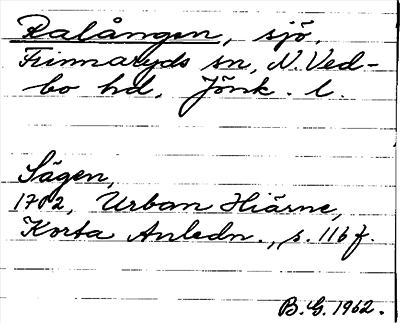 Ralången, sjö,
Finnaryds sn, N. Ved-
bo hd, Jönk. l.
Sägen,
1702, Urban Hiärne,
Korta Anledn., s. 116 f.
B.G. 1962.